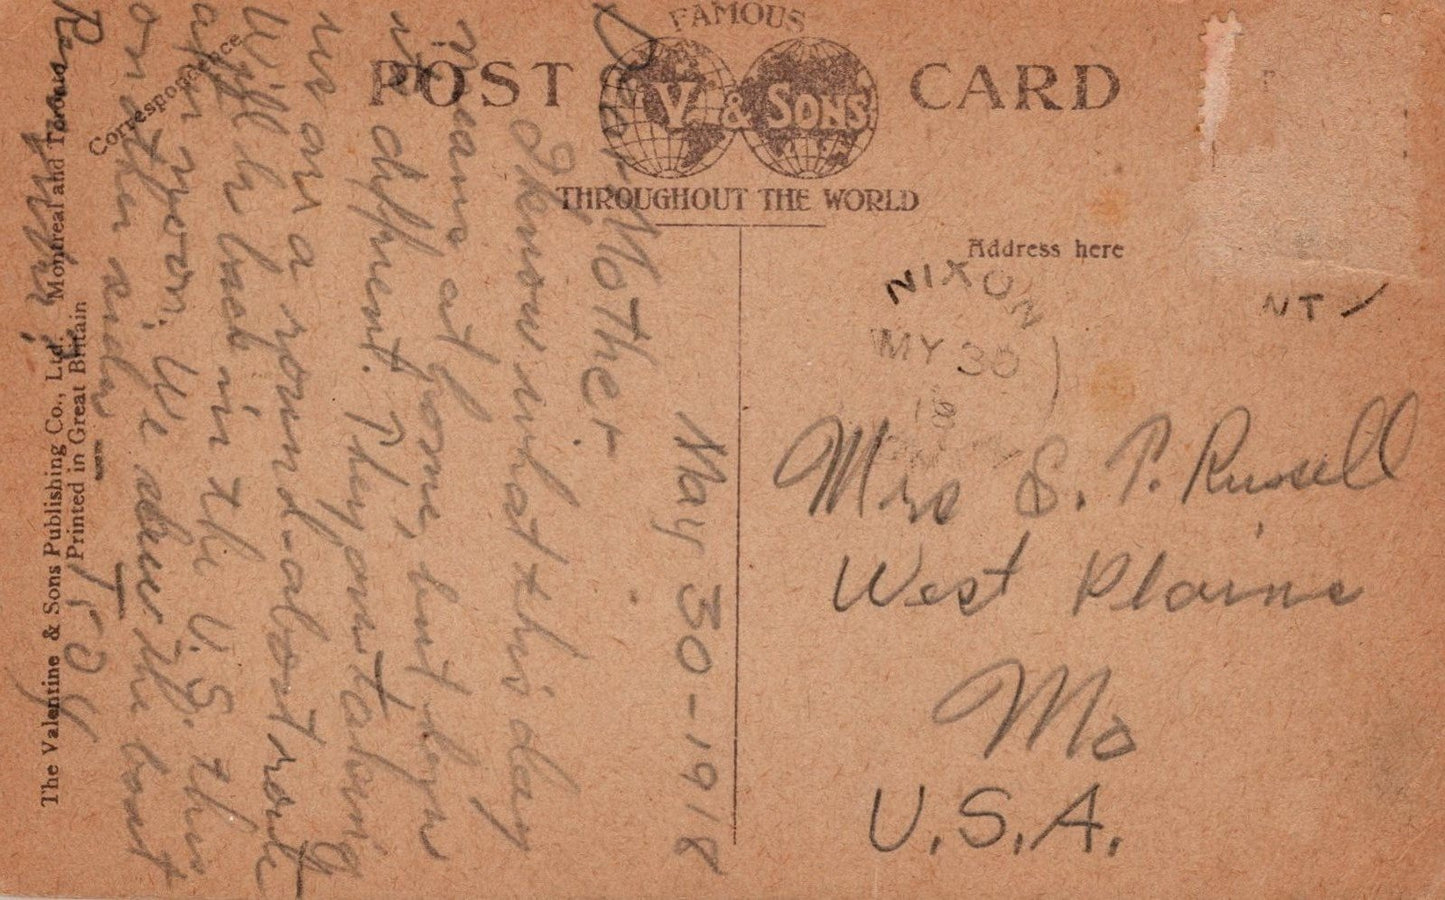 FAMOUS
POST CARD
V & SONS
THROUGHOUT THE WORLD
Correspondence
Address here
NIXON
MY 30
18
NT
May 30-1918
Dear Mother
I know what this day
means at home, but here
its different. They are taking
us on a round-about route
Will be back in the U.S. this
afternoon, We draw the boat
on this side
Troy
Mrs S. P. Russell
West Plains
Mo
U.S.A.
The Valentine & Sons Publishing Co., Ltd. Montreal and Toronto
Printed in Great Britain